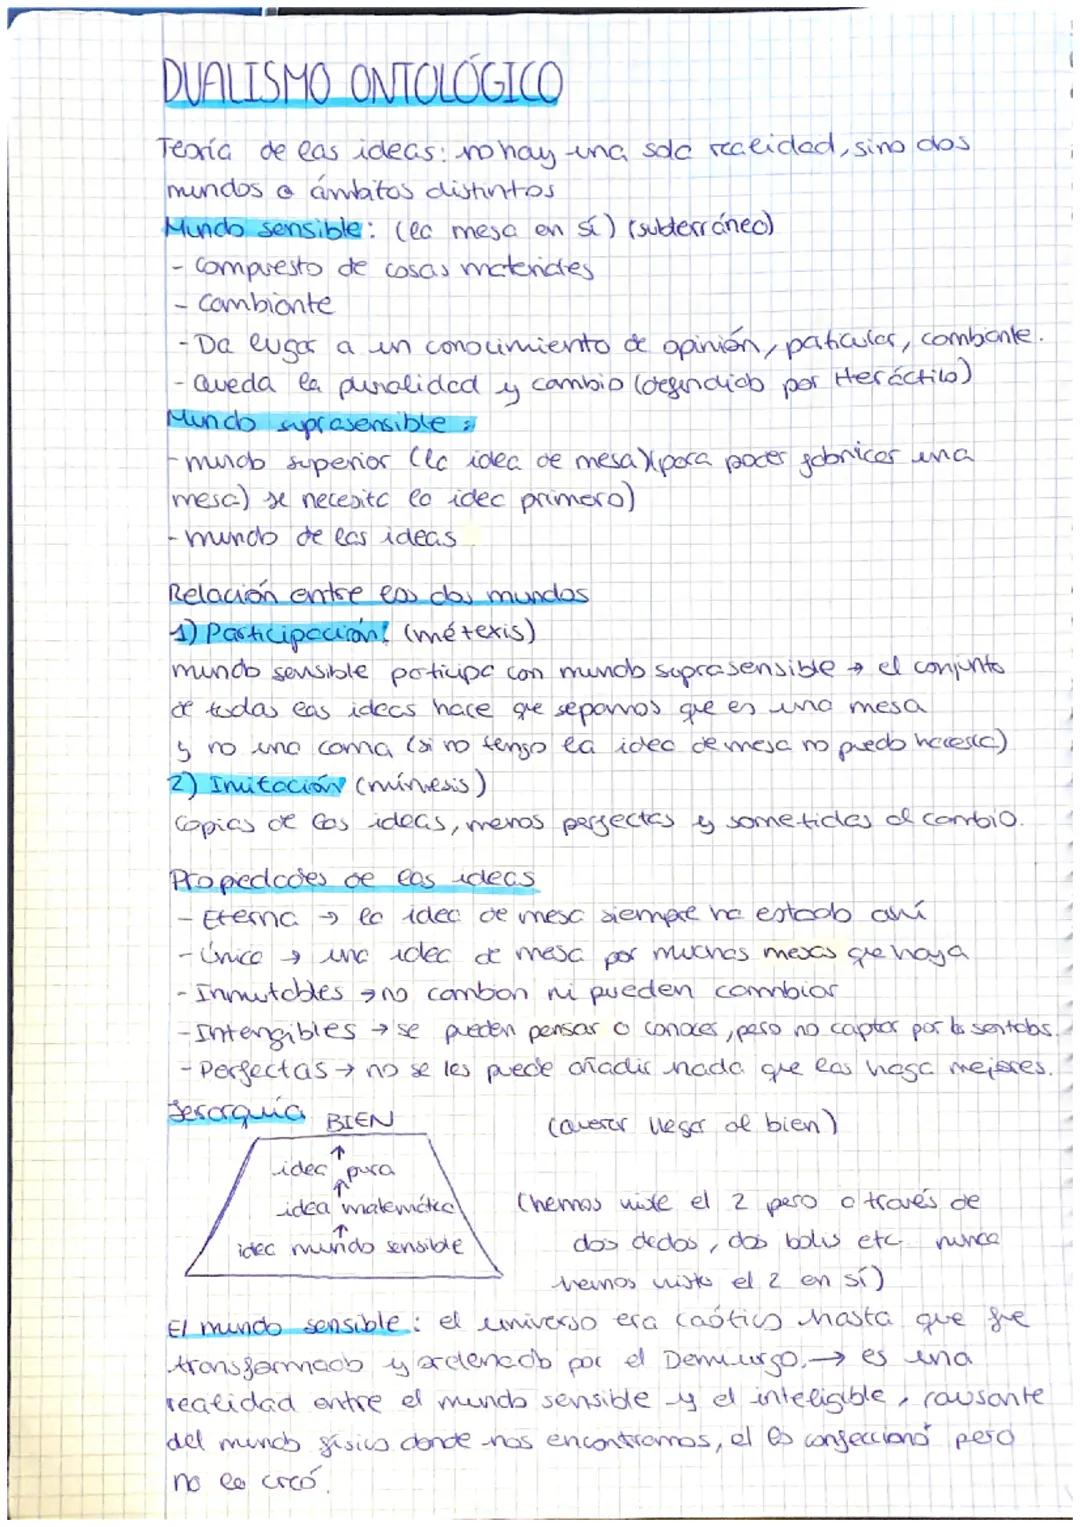 DUALISMO ONTOLÓGICO
Teoría de las ideas: no hay una sola realidad, sino dos
mundos o ámbitos distintos
Mundo sensible: (la mesa en sí) (subterráneo)
- Compuesto de cosas materiales
- Cambiante
- Da lugar a un conocimiento de opinión, paticular, cambiante.
- Queda la puralidad y cambio (defendido por Heráctilo)
Mundo suprasensible:
- mundo superior (la idea de mesa) (para poder fabricar una
mesa) se necesita la idea primero)
- mundo de las ideas
Relación entre los dos mundos
1) Participación: (métexis)
mundo sensible participa con mundo suprasensible → el conjunto
de todas las ideas hace que sepamos que es una mesa
y no una cama (si no tengo la idea de mesa no puedo hacerla)
2) Imitación (mímesis)
Copias de las ideas, menos perfectas y sometidas al cambio.
Propiedades de las ideas
- Eterna → la idea de mesa siempre ha estado ahí
- Única → una idea de mesa por muchas mesas que haya
- Inmutables → no cambian ni pueden cambiar
- Intengibles → se pueden pensar o conocer, pero no captar por los sentidos.
- Perfectas → no se les puede añadir nada que las haga mejores.
Jerarquía BIEN (querer llegar al bien)
↑
idea pura
↑
idea matemática (hemos visto el 2 pero a través de
↑ dos dedos, dos bolis etc nunca
idea mundo sensible hemos visto el 2 en sí)
El mundo sensible: el universo era caótico hasta que fue
transformado y ordenado por el Demiurgo. → es una
realidad entre el mundo sensible y el inteligible, causante
del mundo físico donde nos encontramos, el lo confeccionó pero
no lo creó.